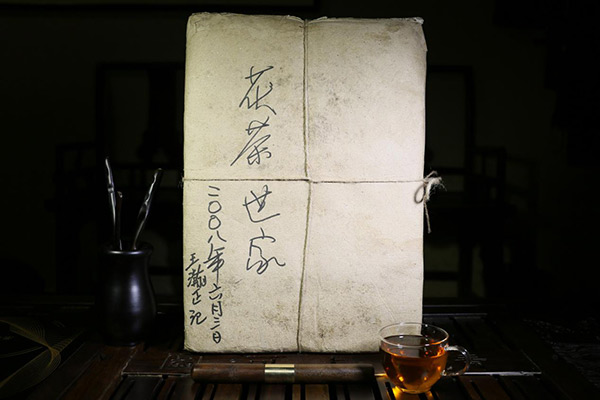 茯茶世家
二〇〇八年六月三日
王 正记